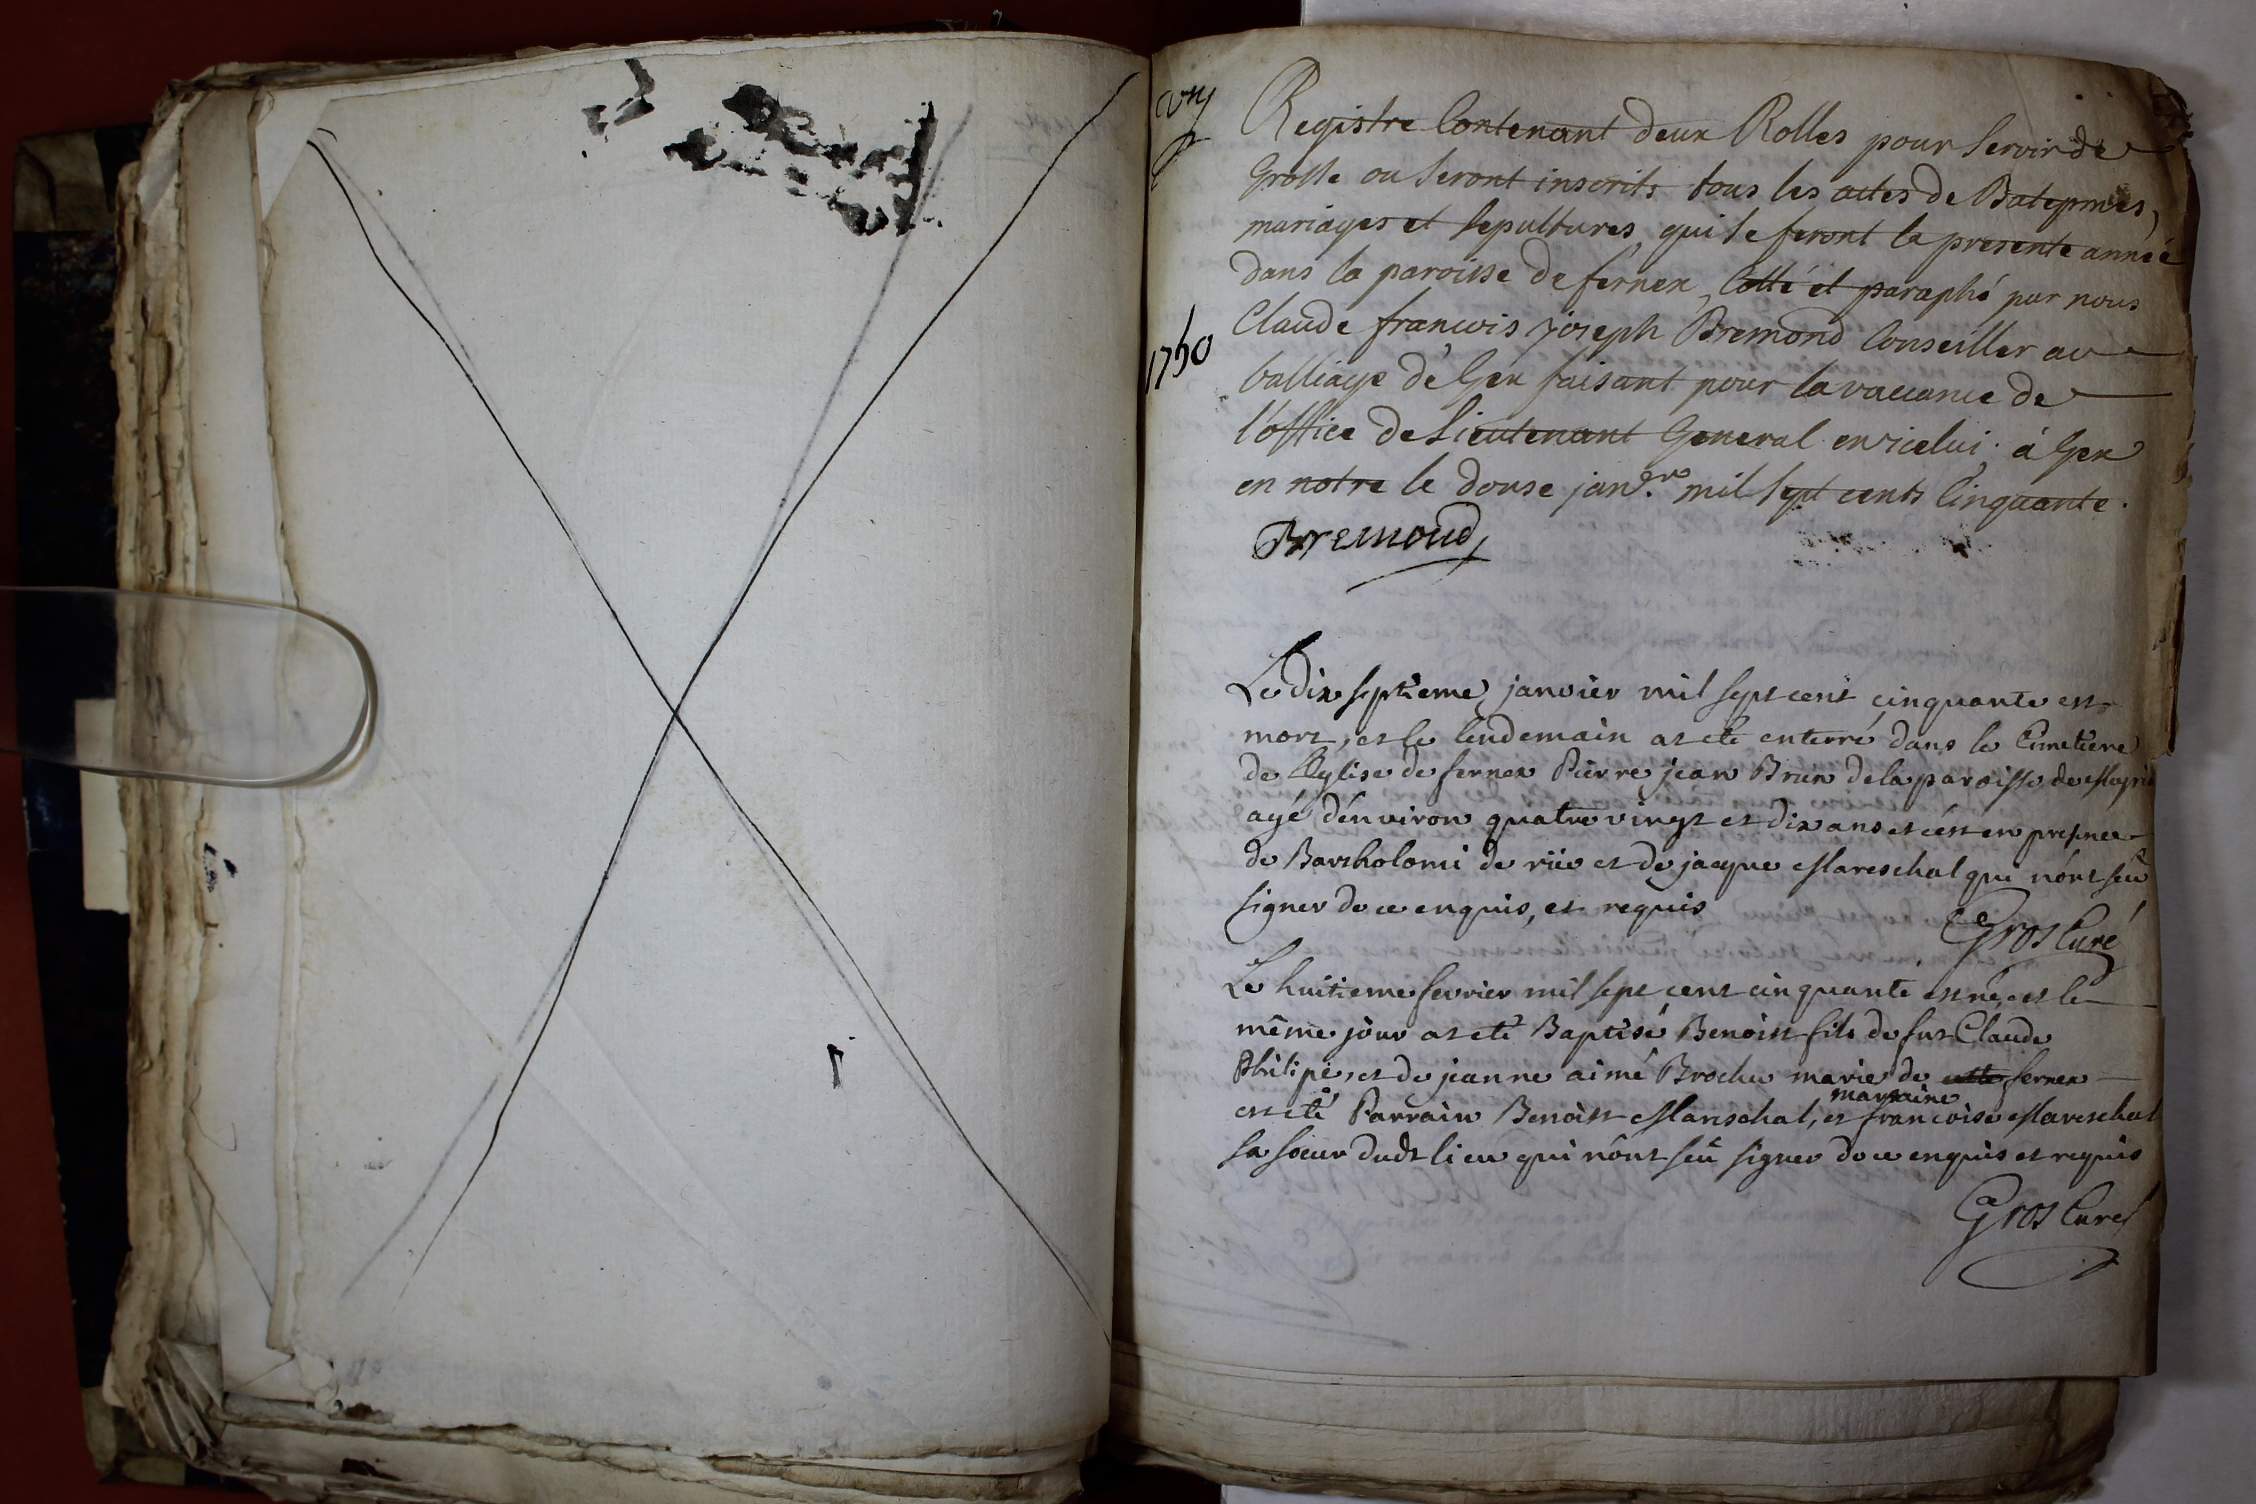 Registre Contenant deux Rolles pour Servir de
Grosse ou Seront inscrits tous les actes de Batepmes,
mariages et Sepultures qui se feront la presente année
dans la paroisse de fernex, Cotté et paraphé par nous
1750
Claude francois joseph Bremond Conseiller au
balliage de Gex faisant pour la vaccance de
l'office de Lieutenant General en icelui. à Gex
en notre le douse janer. mil sept cents Cinquante.
Bremond
Le dix septieme janvier mil sept cent cinquante est
mort, et le lendemain at eté enterré dans le Cimetiere
de L'Eglise de fernex Pierre jean Brun de la paroisse de
agé d'énviron quatre vingt et dix ans et c'est en presnce
de Bartholomi de rüe et de jacque Mareschal qui n'ónt seû
signer de ce enquis, et requis
Gros Curé
Le huitieme fevrier mil sept cent cinquante est né, et le
même jour at eté Baptisé Benoist fils de fut Claude
Philipe, et de jeanne aimé Brochu marie de cette fernex
marraine
est eté Parrain Benoist Mareschal, et francoise Mareschal
sa soeur dudt lieu qui n'ont seû signer de ce enquis et requis
Gros Curé